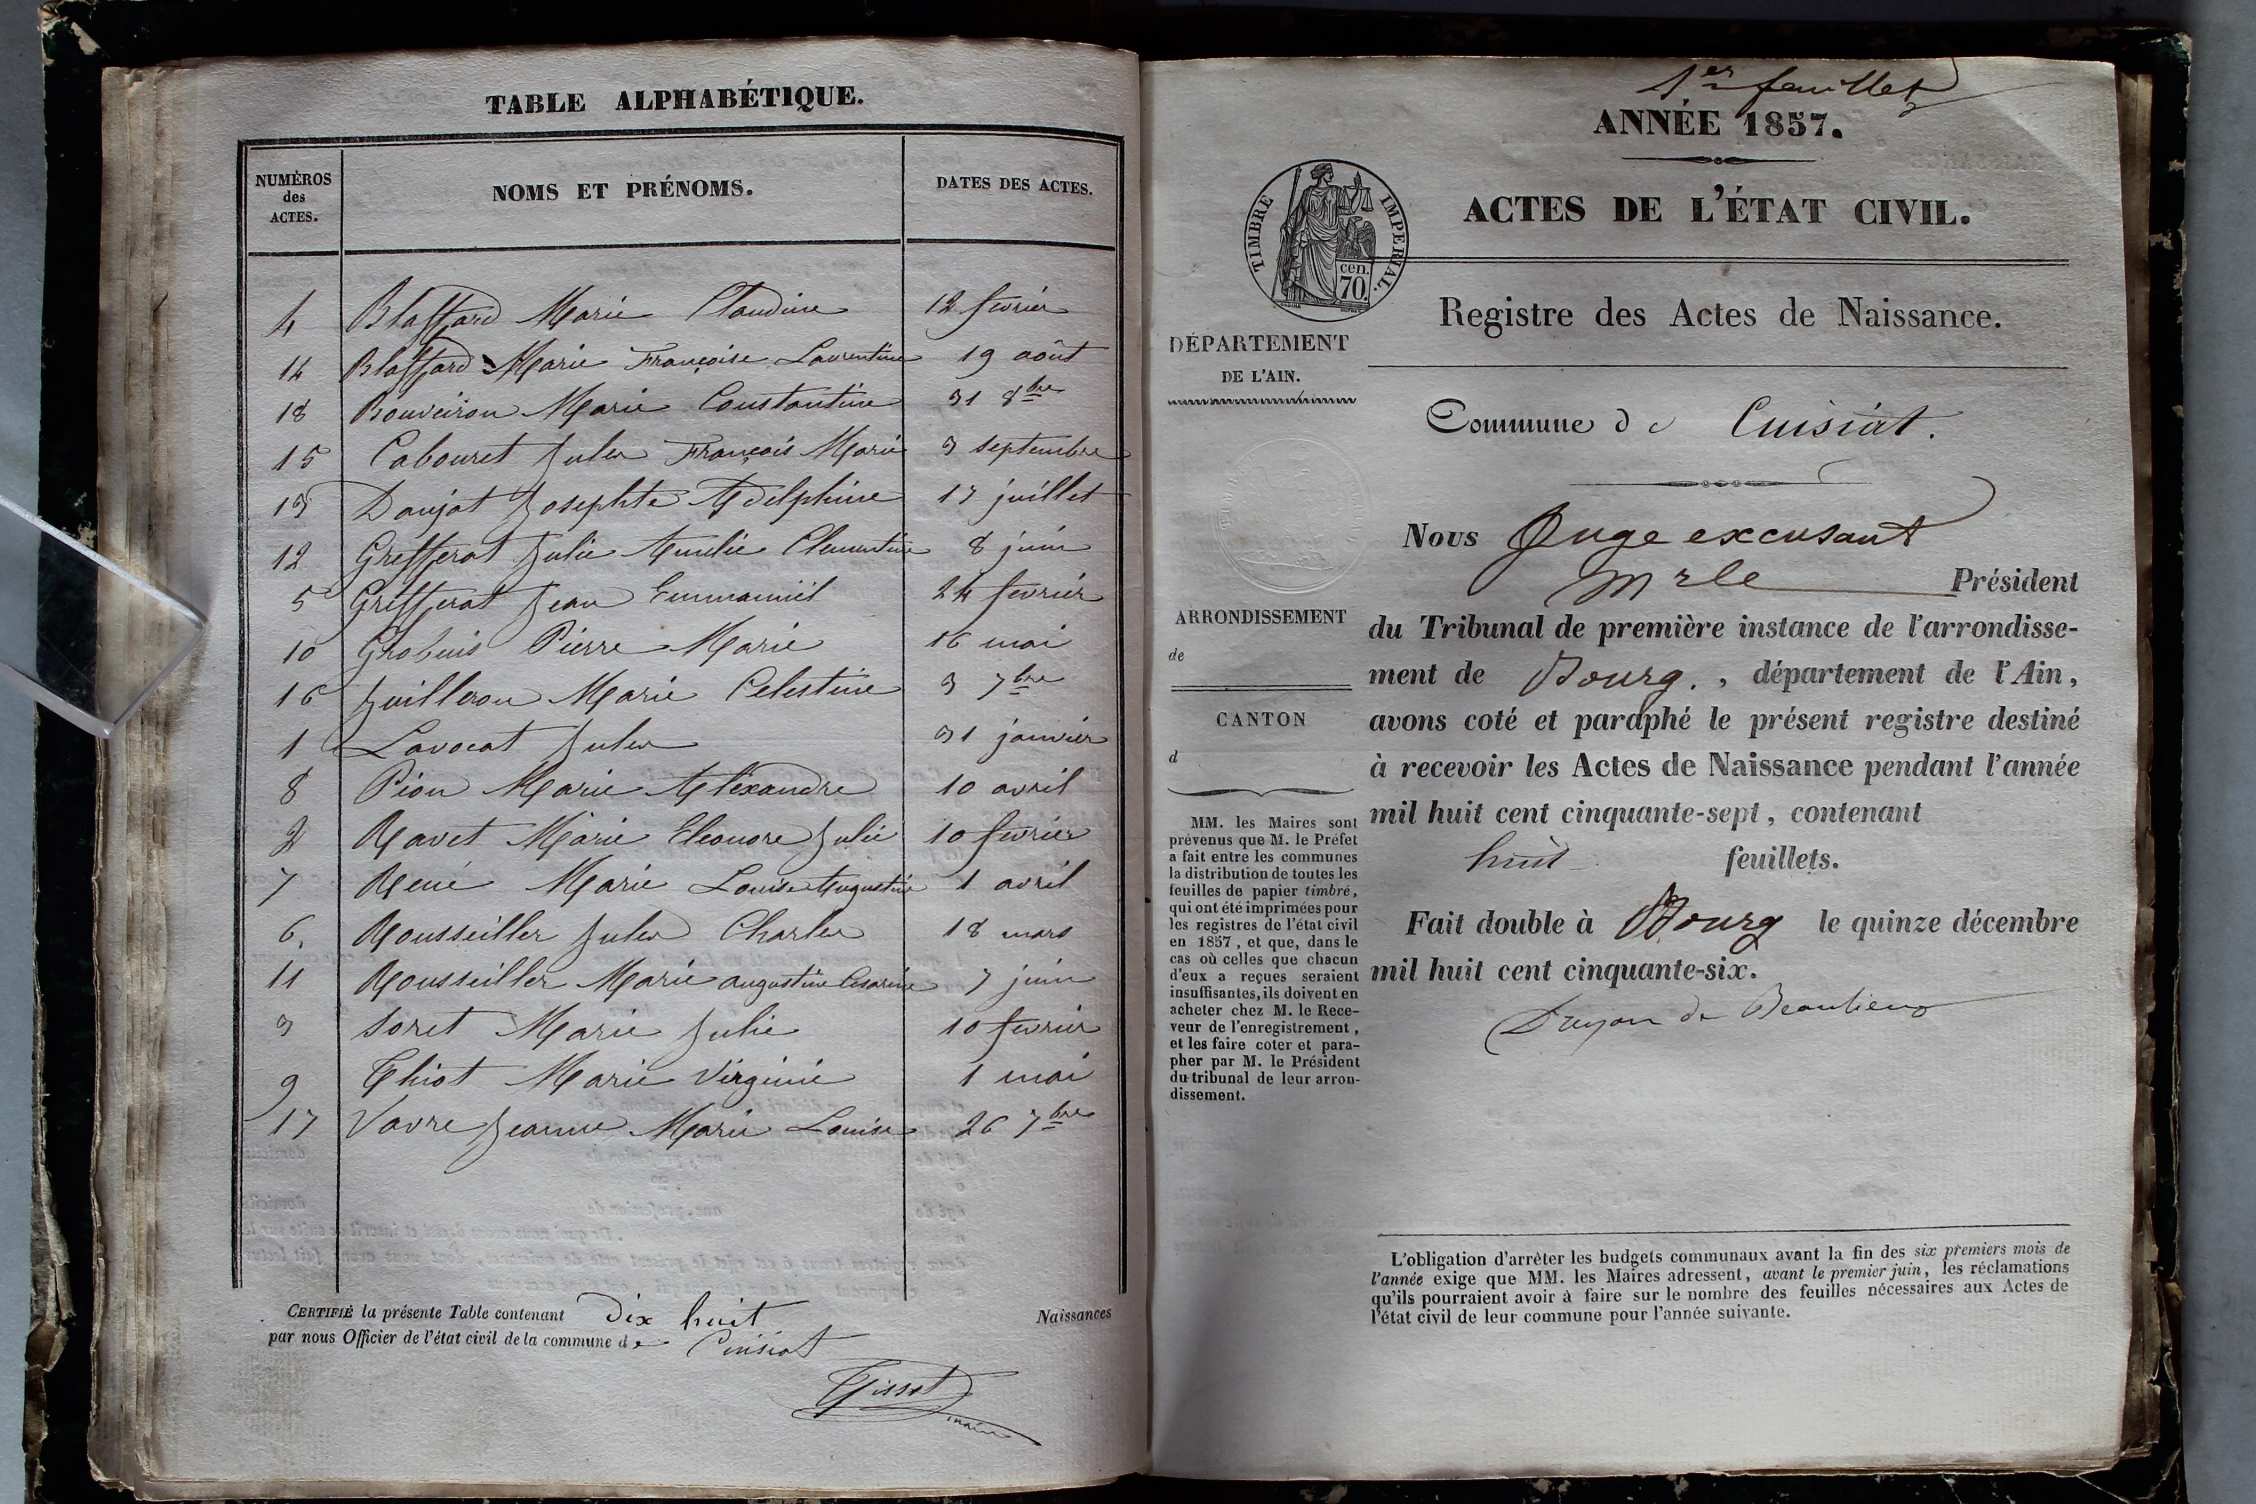 TABLE ALPHABÉTIQUE.
NUMÉROS des ACTES. NOMS ET PRÉNOMS. DATES DES ACTES.
4 Blaffard Marie Claudine 12 fevrier
14 Blaffard Marie Françoise Laurentine 19 août
18 Bouveiron Marie Constantine 31 8bre
15 Cabouret Jules François Marie 3 septembre
13 Daujat Josephte Adelphine 17 juillet
12 Grefferat Julie Amelie Clementine 8 juin
5 Grefferat Jean Emmanuël 24 fevrier
10 Grobuis Pierre Marie 16 mai
16 Juilleron Marie Celestine 3 7bre
1 Lavocat Jules 31 janvier
8 Pion Marie Aléxandre 10 avril
2 Ravet Marie Eleonore Julie 10 fevrier
7 René Marie Louise Augustine 1 avril
6. Rousseiller Jules Charles 18 mars
11 Rousseiller Marie augustine Cesarine 7 juin
3 Soret Marie Julie 10 fevrier
9 Thiot Marie Virginie 1 mai
17 Vavre Jeanne Marie Louise 26 7bre
CERTIFIÉ la présente Table contenant Dix huit Naissances
par nous Officier de l'état civil de la commune de Cuisiat
Tissot
maire
1er feuillet
ANNÉE 1857.
ACTES DE L'ÉTAT CIVIL.
TIMBRE IMPERIAL.
cen.
70.
Registre des Actes de Naissance.
DÉPARTEMENT
DE L'AIN.
Commune de Cuisiat.
Nous Juge excusant
Mr le Président
du Tribunal de première instance de l'arrondisse-
ment de Bourg. , département de l'Ain,
avons coté et paraphé le présent registre destiné
à recevoir les Actes de Naissance pendant l'année
mil huit cent cinquante-sept, contenant
huit feuillets.
Fait double à Bourg le quinze décembre
mil huit cent cinquante-six.
Druyon de Beaulieu
ARRONDISSEMENT
de
CANTON
d
MM. les Maires sont
prévenus que M. le Préfet
a fait entre les communes
la distribution de toutes les
feuilles de papier timbré,
qui ont été imprimées pour
les registres de l'état civil
en 1857, et que, dans le
cas où celles que chacun
d'eux a reçues seraient
insuffisantes, ils doivent en
acheter chez M. le Rece-
veur de l'enregistrement,
et les faire coter et para-
pher par M. le Président
du tribunal de leur arron-
dissement.
L'obligation d'arrêter les budgets communaux avant la fin des six premiers mois de
l'année exige que MM. les Maires adressent, avant le premier juin, les réclamations
qu'ils pourraient avoir à faire sur le nombre des feuilles nécessaires aux Actes de
l'état civil de leur commune pour l'année suivante.